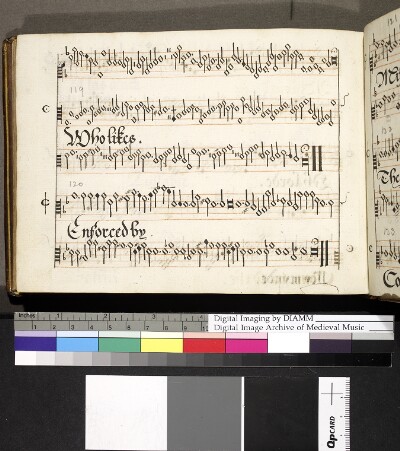 119
Who likes.
120
Enforced by
121
The
Co
inches 1 2 3
Digital Imaging by DIAMM
Digital Image Archive of Medieval Music
QPCARD